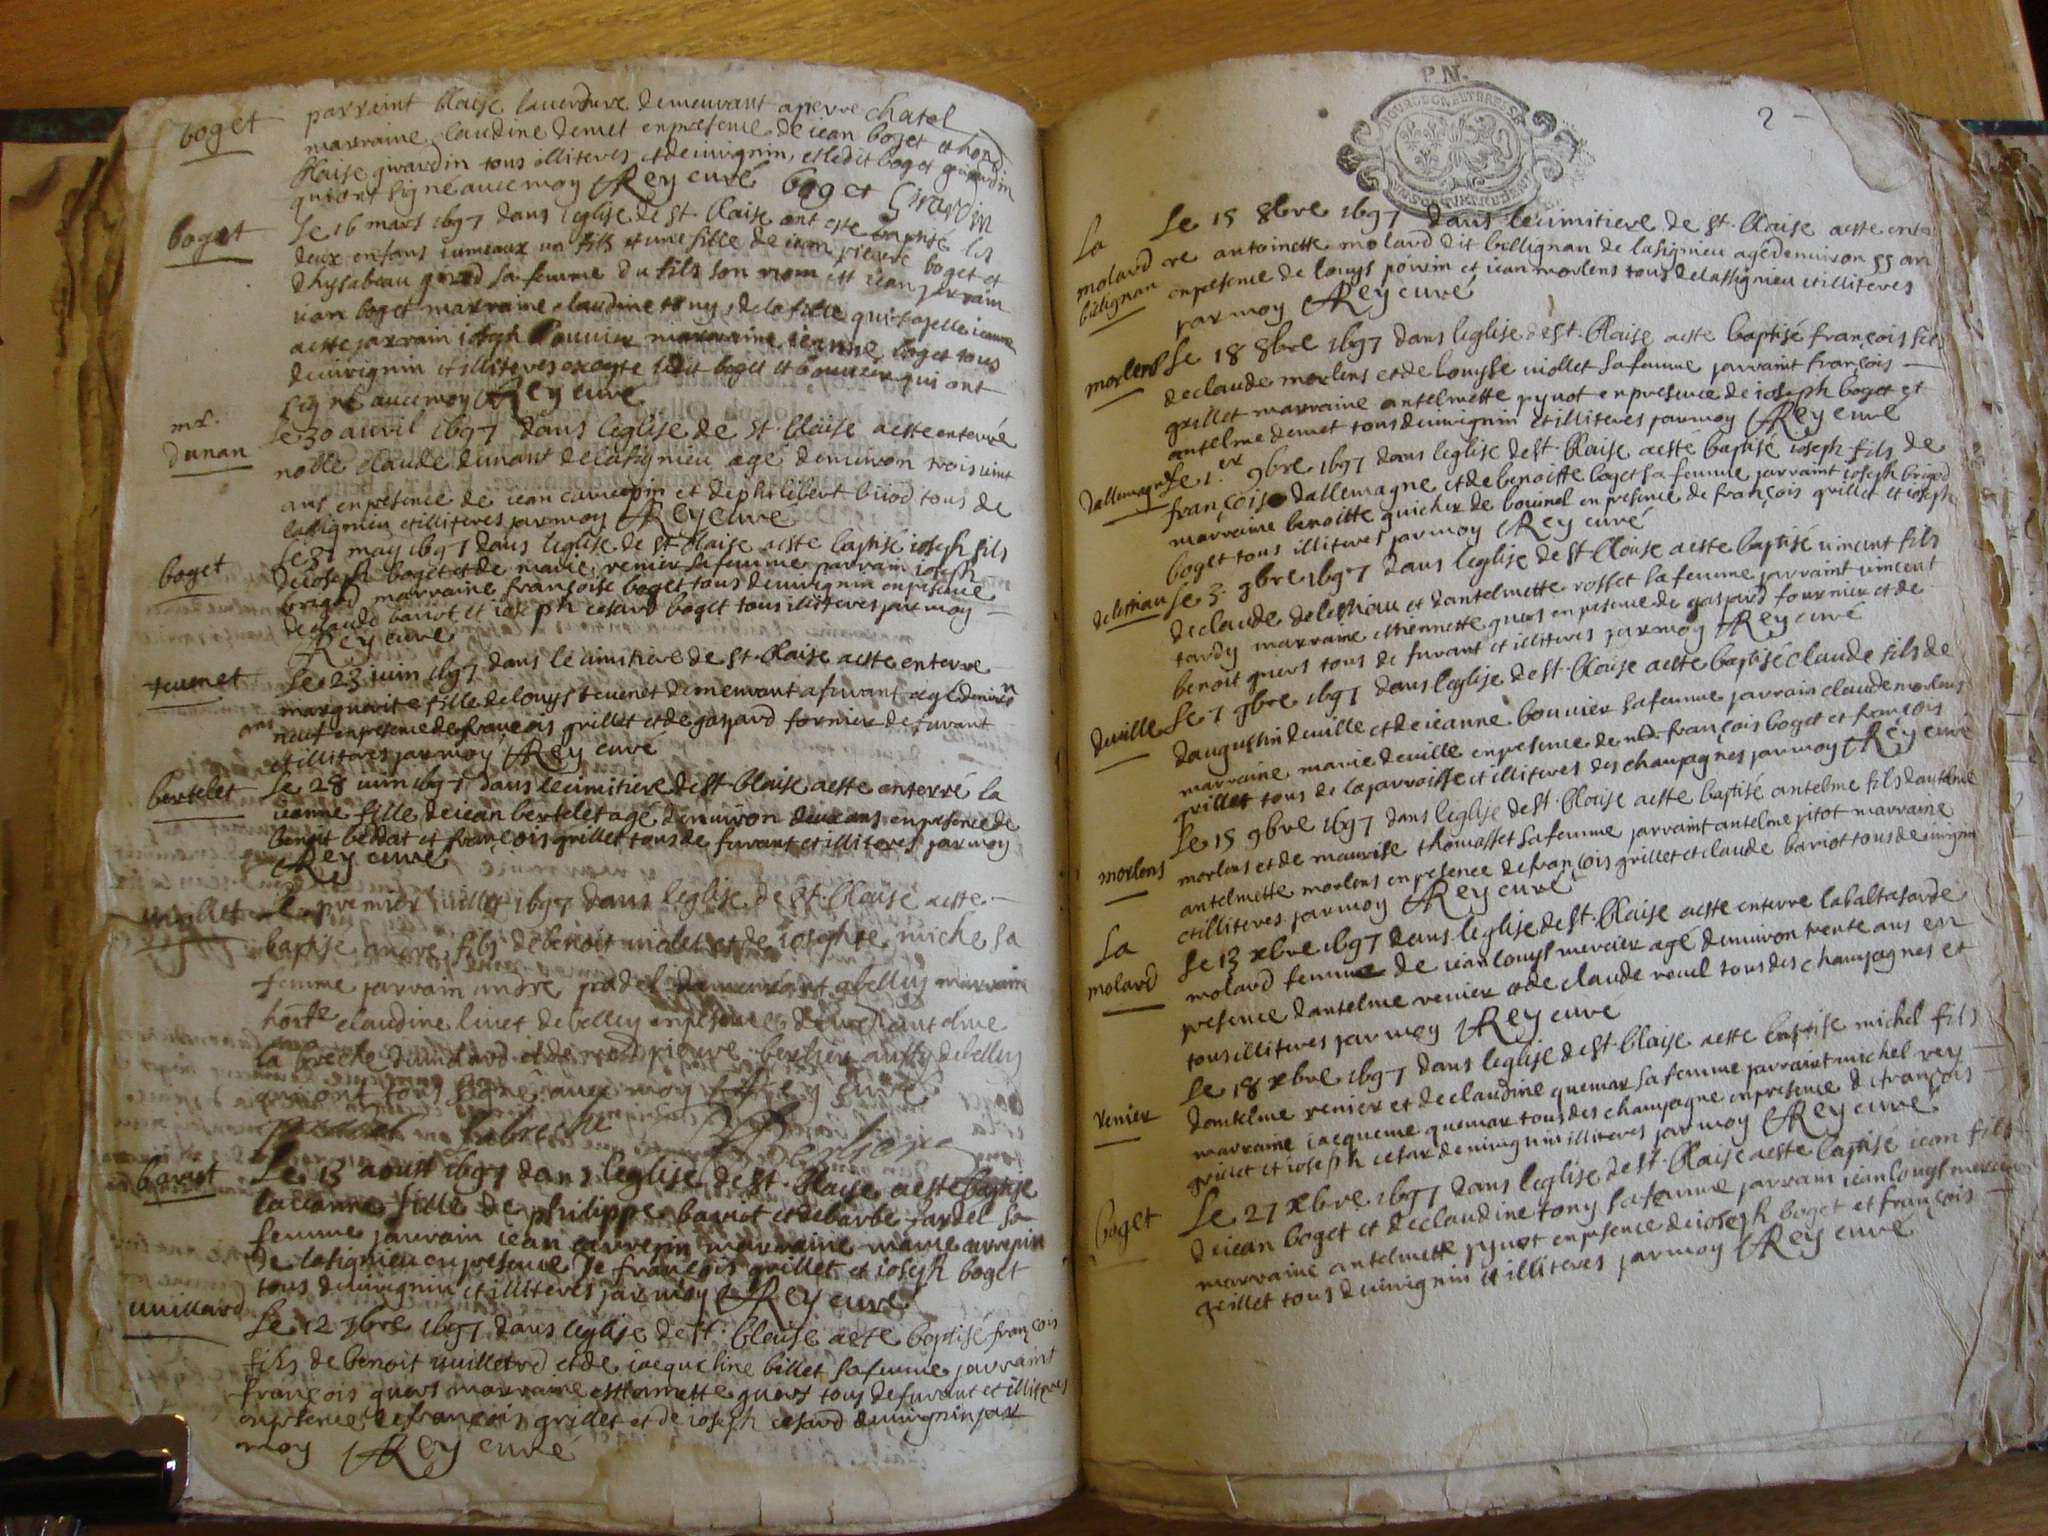 boget
parraint blaise laverdure demeurant a pierre chatel
marraine claudine demet en presence de iean boget et hond
blaise girardin tous illiteres et deuirignin, et ledit boget girardin
qui ont signé auec moy Rey curé boget Girardin
boget
Le 16 mars 1697 dans leglise de St. blaise ont este baptisé les
deux enfans iumeaux un fils et une fille de iean pierre boget et
dhysabeau sa femme du fils son nom est iean parrain
iean boget marraine claudine tony, de la fille qui sapelle ieanne
aeste parrain ioseph bouuier marraine ieanne boget tous
deuirignin et illiteres excepte ledit boget et bouuier qui ont
signé auec moy Rey curé
mr.
dunan
Le 30 auril 1697 dans leglise de St. blaise aeste enterré
noble claude dunant delasignieu age denuiron trois uint
ans en presence de iean carrerin et de philibert buiod tous de
lassignieu et illiteres par moy Rey curé
boget
Le 31 may 1697 dans leglise de St blaise aeste baptisé ioseph fils
de ioseph boget et de marie renier sa femme parrain ioseph
brigod marraine françoise boget tous deuirignin en presence
de claude bariot et ioseph cesard boget tous illiteres par moy
Rey curé
teuenet
Le 23 iuin 1697 dans le cimitiere de St. blaise aeste enterre
marguerite fille de louys teuenet demeurant a furant agé denuiron
neuf ans en presence de françois grillet et de gaspard fornier de furant
et illiteres par moy Rey curé
bertelet
Le 28 iuin 1697 dans le cimitiere de St. blaise aeste enterré la
ieanne fille de iean bertelet agé denuiron deux ans en presence de
benoit beddat et françois grillet tous de furant et illiteres par moy
Rey curé
uiollet
Le premier iuillet 1697 dans leglise de St. blaise aeste
baptise andre fils de benoit uiolet et de iosephte miche sa
femme parrain andre pradel demeurant abelley marraine
honte claudine liuet de belley en presence de antelme
la breche et de pierre berlier de belley
qui ont tous signé auec moy Rey curé
pradel labreche Berlier
bariot
Le 13 aoust 1697 dans leglise de St. blaise aeste baptisé
la ieanne fille de philippe bariot et de barbe pardel sa
femme parrain iean carrerin marraine marie carrerin
de lasignieu en presence de françois grillet et ioseph boget
tous deuirignin et illiteres par moy Rey curé
uuillard
Le 12 9bre 1697 dans leglise de St. blaise aeste baptisé françois
fils de benoit uuilletrd et de iacqueline billet sa femme parraint
françois guers marraine estiennette guers tous de furant et illiteres
en presence de françois grillet et de ioseph cesard deuirignin par
moy Rey curé
P.N.
2
La
molard
billignan
Le 15 8bre 1697 dans le cimitiere de St. blaise aeste enter
re antoinette molard dit billignan de lasignieu agé denuiron 55 an
en presence de louys poirin et iean morlens tous delassignieu et illiteres
par moy Rey curé
morlens
Le 18 8bre 1697 dans leglise de St. blaise aeste baptisé françois fils
de claude morlens et de louyse uiollet sa femme parraint françois
grillet marraine antelmette pynot en presence de ioseph boget et
antelme demet tous deuirignin et illiteres par moy Rey curé
dallemagne
Le 1.er 9bre 1697 dans leglise de St. blaise aeste baptisé ioseph fils de
françois dallemagne et de benoitte boget sa femme parraint ioseph brigod
marraine benoitte guicher de bouinel en presence de françois grillet et ioseph
boget tous illiteres par moy Rey curé
delestiau
Le 3. 9bre 1697 dans leglise de St blaise aeste baptisé uincent fils
de claude delestiau et dantelmette rosset sa femme parraint uincent
tardy marraine estiennette guers en presence de gaspard fournier et de
benoit guers tous de furant et illiteres par moy Rey curé
deuille
Le 7 9bre 1697 dans leglise de St. blaise aeste baptisé claude fils de
daugustin deuille et de ieanne bouuier sa femme parrain claude morlens
marraine marie deuille en presence de françois boget et françois
grillet tous de la parroisse et illiteres des champagnes par moy Rey curé
morlens
Le 15 9bre 1697 dans leglise de St. blaise aeste baptisé antelme fils dantelme
morlens et de maurise thomasset sa femme parraint antelme pitot marraine
antelmette morlens en presence de françois grillet et claude bariot tous deuirignin
et illiteres par moy Rey curé
La
molard
Le 13 xbre 1697 dans leglise de St. blaise aeste enterre la baltasarde
molard femme de iean louys mercier agé denuiron trente ans en
presence dantelme renier et de claude rouel tous des champagnes et
tous illiteres par moy Rey curé
renier
Le 18 xbre 1697 dans leglise de St. blaise aeste baptise michel fils
dantelme renier et de claudine quemar sa femme parraint michel rey
marraine iacqueme quemar tous des champagne en presence de françois
grillet et ioseph cesar deuirignin illiteres par moy Rey curé
boget
Le 27 xbre 1697 dans leglise de St. blaise aeste baptisé iean fils
de iean boget et de claudine tony sa femme parrain iean louys mercier
marraine antelmette pynot en presence de ioseph boget et françois
grillet tous deuirignin et illiteres par moy Rey curé